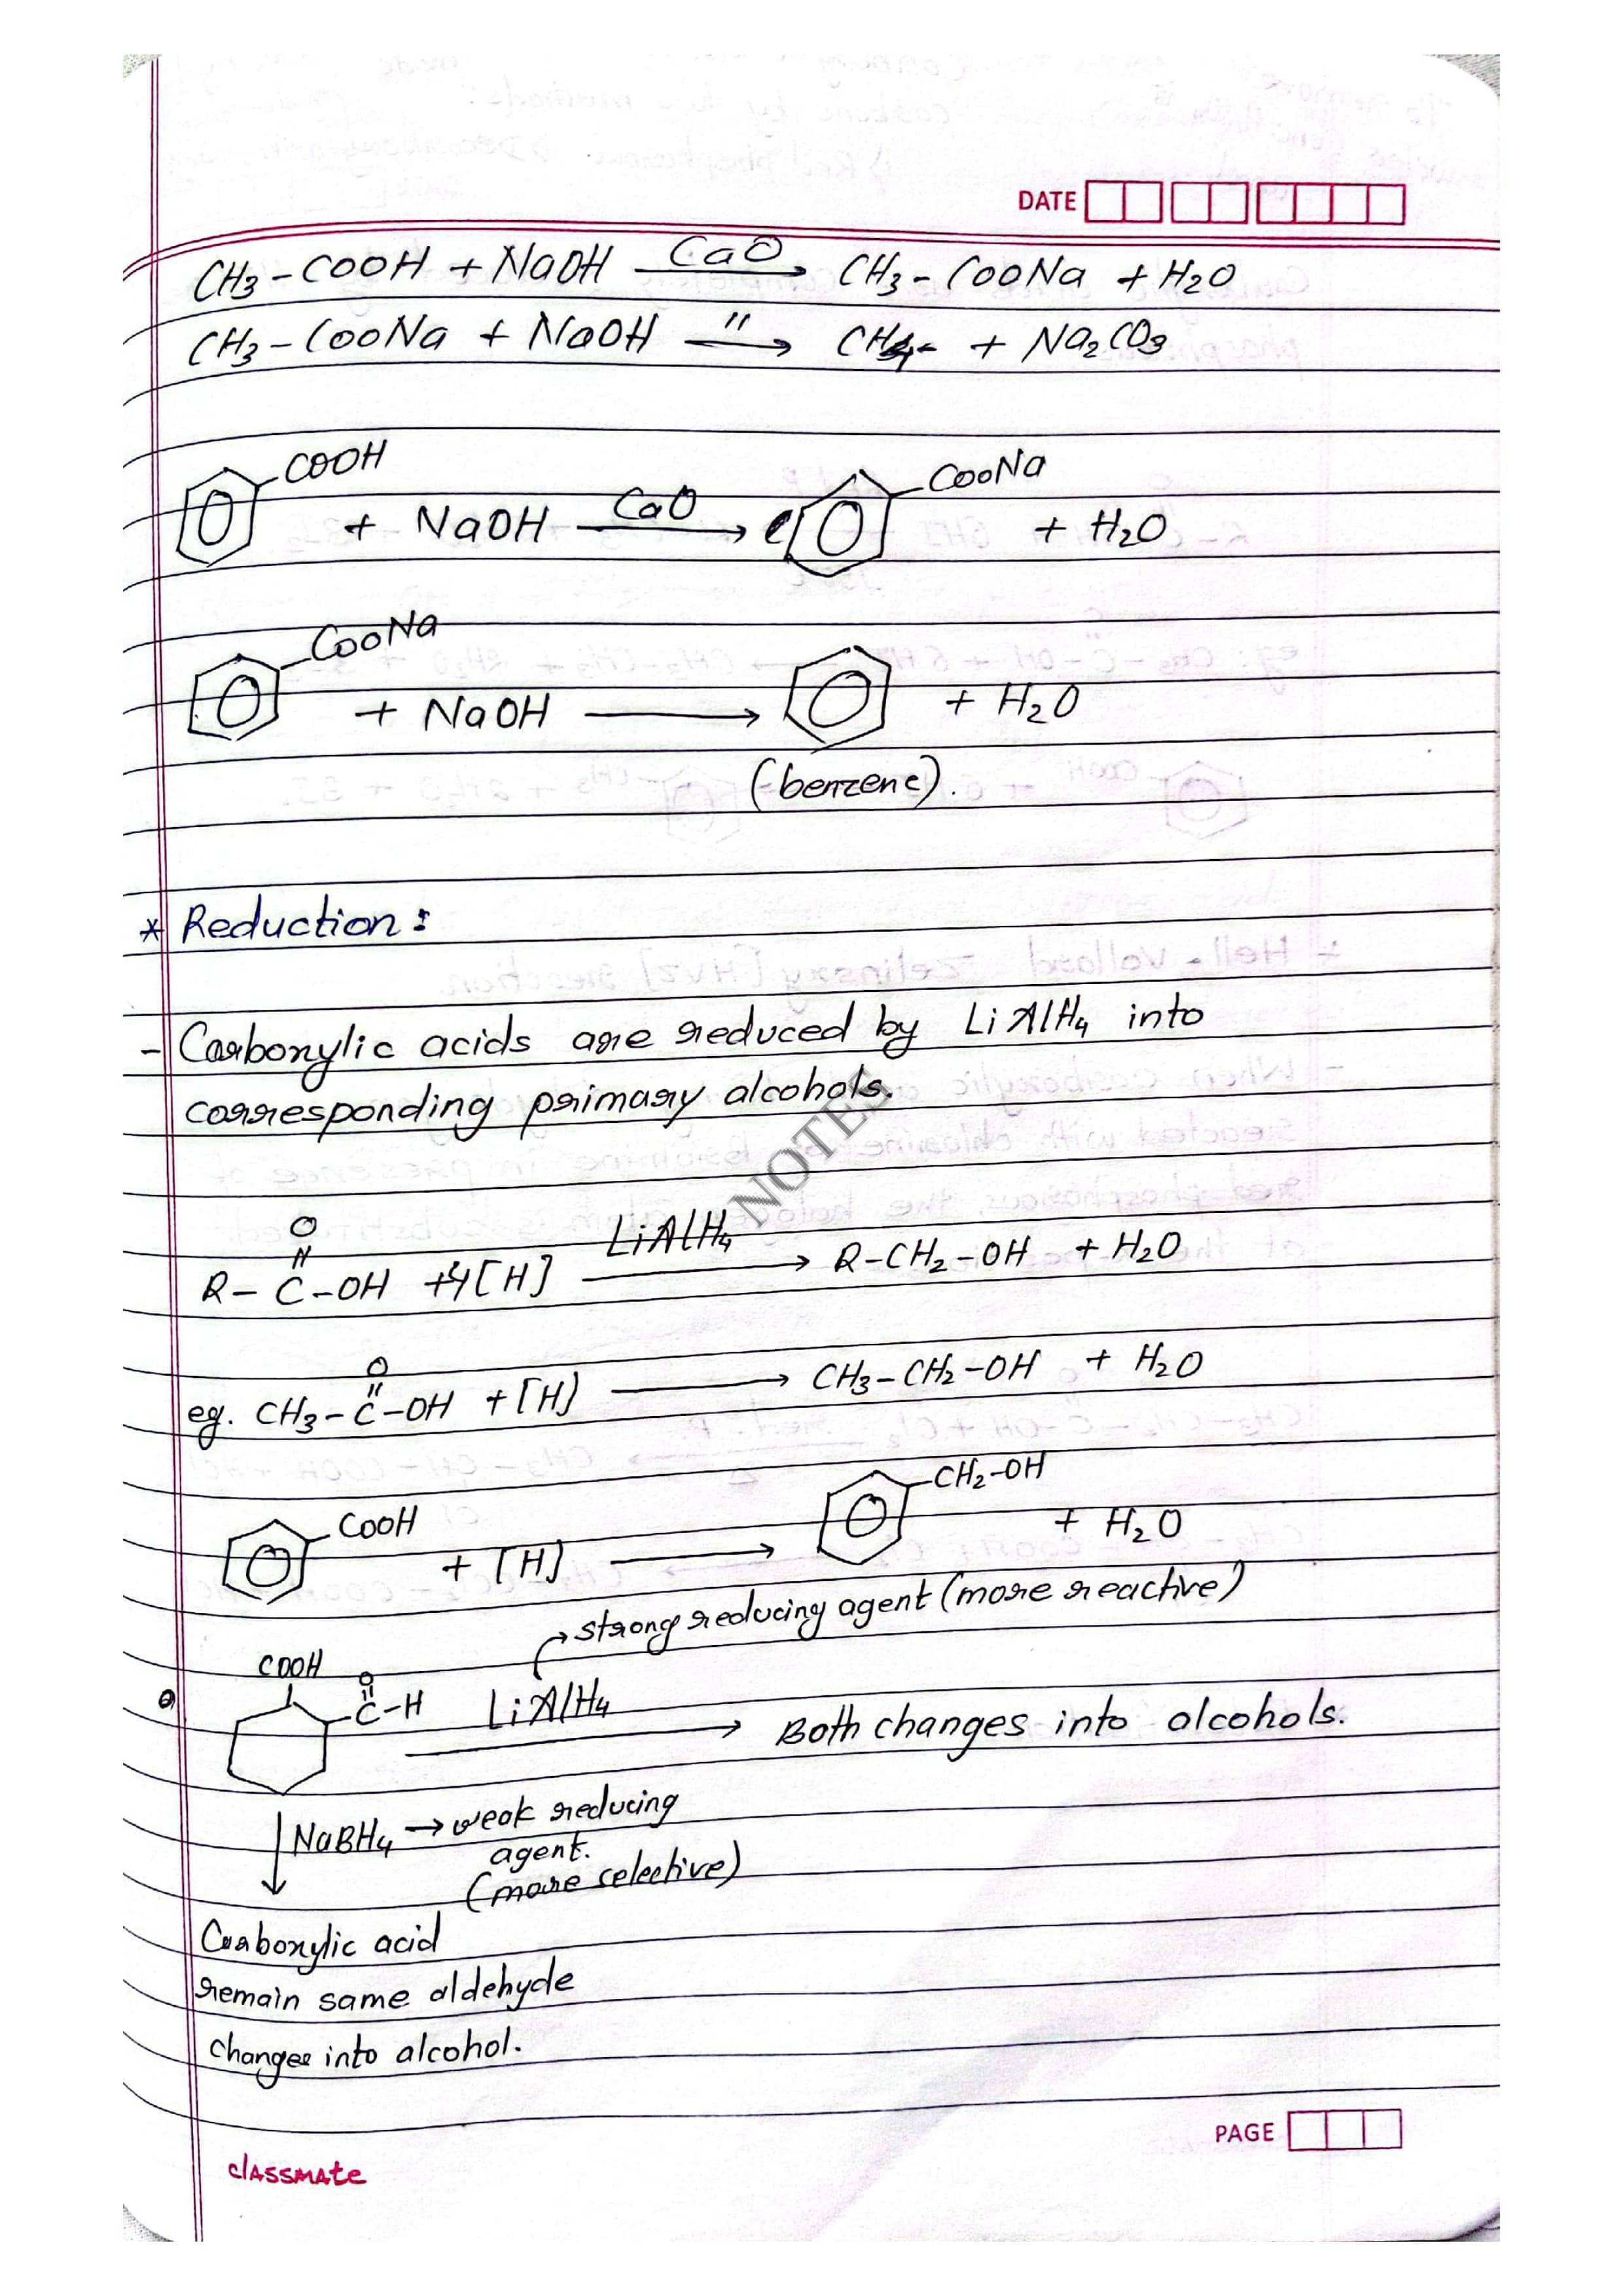 DATE
CH3-COOH + NaOH CaO → CH3-COONa + H2O
CH3-COONa + NaOH " → CH4 + Na2CO3
COOH + NaOH CaO → COONa + H2O
COONa + NaOH → + H2O
(benzene).
* Reduction:
- Carboxylic acids are reduced by LiAlH4 into
corresponding primary alcohols.
NOTES
O
R-C-OH +4[H] LiAlH4 → R-CH2-OH + H2O
O
eg. CH3-C-OH +[H] → CH3-CH2-OH + H2O
COOH + [H] → CH2-OH + H2O
strong reducing agent (more reactive)
COOH O
C-H LiAlH4 → Both changes into alcohols.
NaBH4 → weak reducing
agent.
(more selective)
Carboxylic acid
remain same aldehyde
changes into alcohol.
PAGE
classmate